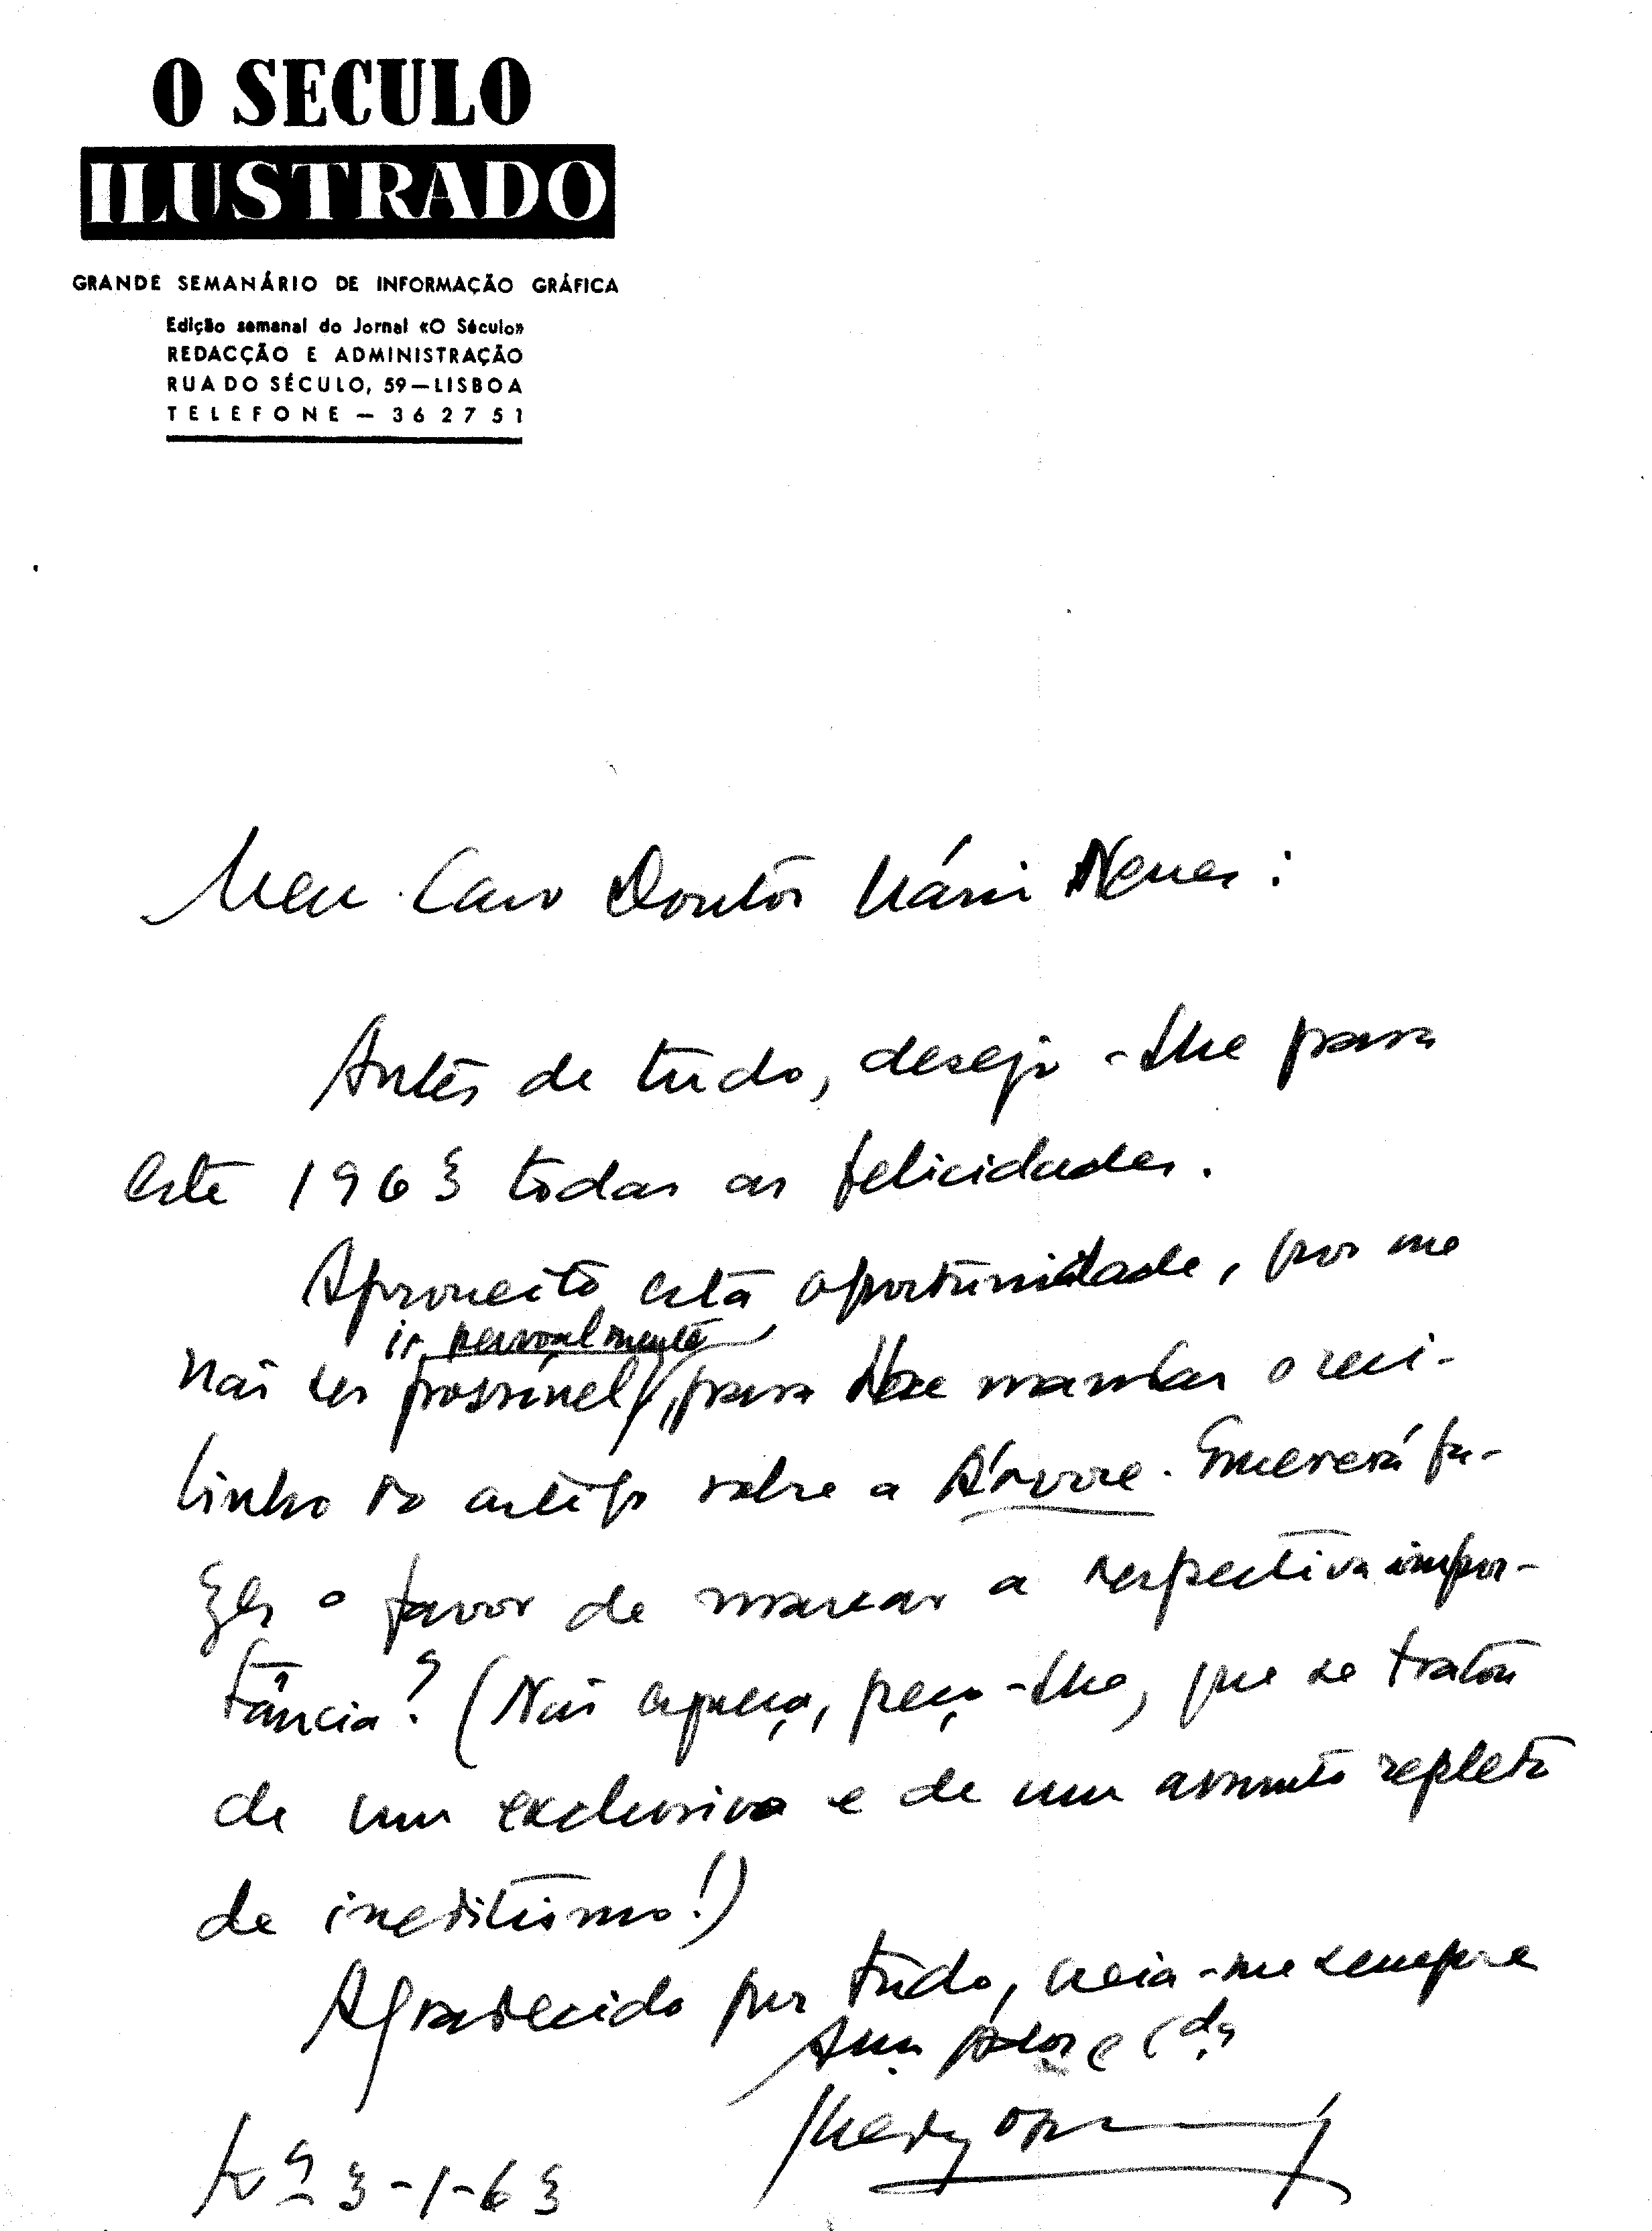 O SECULO
ILUSTRADO
GRANDE SEMANÁRIO DE INFORMAÇÃO GRÁFICA
Edição semanal do Jornal «O Século»
REDACÇÃO E ADMINISTRAÇÃO
RUA DO SÉCULO, 59—LISBOA
TELEFONE — 362751
Meu Caro Doutor Mário Neves:
Antes de tudo, desejo-lhe para
este 1963 todas as felicidades.
Aproveito esta oportunidade, por me
ir pessoalmente
não ser possível, para lhe mandar o reci-
binho do artigo sobre a Árvore. Quererá fa-
zer o favor de marcar a respectiva impor-
tância? (Não esqueça, peço-lhe, que se tratou
de um exclusivo e de um assunto repleto
de ineditismo!)
Agradecido por tudo, creia-me sempre
3-1-63